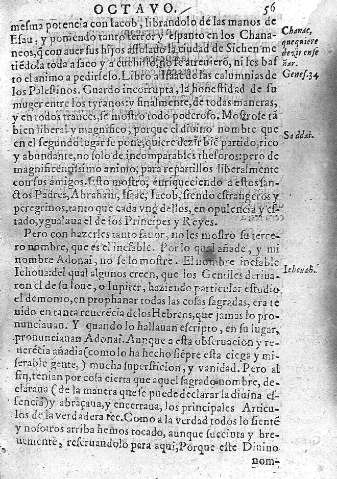 OCTAVO. 56
mesma potencia con Iacob, librandolo de las manos de
Esau, y poniendo tanto terror y espanto en los Chana-
neos, q con auer sus hijos assolado la ciudad de Sichen me
tiédola toda a saco y a cuchillo, no se atreuieró, ni les bas
to el animo a pedirselo. Libro a Isaac de las calumnias de
los Palestinos. Guardo incorrupta, la honestidad de su
muger entre los tyranos: y finalmente, de todas maneras,
y en todos trances, se mostro todo poderoso. Mostrose tá
bien liberal y magnifico, porque el diuino nombre que
en el segundo lugar se pone, quiere dezir bié partido, rico
y abundante, no solo de incomparables thesoros: pero de
magnificentissimo animo, para repartillos liberalmente
con sus amigos. Esto mostro, enriqueciendo a estos san-
ctos Padres, Abraham, Isaac, Iacob, siendo estrangeros y
peregrinos, tanto que cada vno dellos, en opulencia y es-
tado, ygualaua el de los Principes y Reyes.
Pero con hazerles tanto fauor, no les mostro su ter-
rero nombre, que es el inefable. Por lo qual añade, y mi
nombre Adonai, no se lo mostre. El nombre inefable
Iehoua: del qual algunos creen, que los Gentiles deriua-
ron el de su Ioue, o Iupiter, haziendo particular estudio
el demonio, en prophanar todas las cosas sagradas, era te
nido en tanta reuerécia de los Hebreos, que jamas lo pro-
nunciauan. Y quando lo hallauan escripto, en su lugar,
pronunciauan Adonai. Aunque a esta obseruacion y re-
uerécia añadia (como lo ha hecho siépre esta ciega y mi-
serable gente,) mucha supersticion, y vanidad. Pero al
fin, tenian por cosa cierta que aquel sagrado nombre, de-
claraua (de la manera que se puede declarar la diuina es-
sencia) y abraçaua, y encerraua, los principales Articu-
los de la verdadera fee. Como a la verdad todos lo sienté
y nosotros arriba hemos tocado, aunque succinta y bre-
uemente, reseruandolo para aqui, Porque este Diuino
nom-
Chanae,
que quiere
dezir ense
ñar.
Genes. 34
Saddai.
Iehouah.